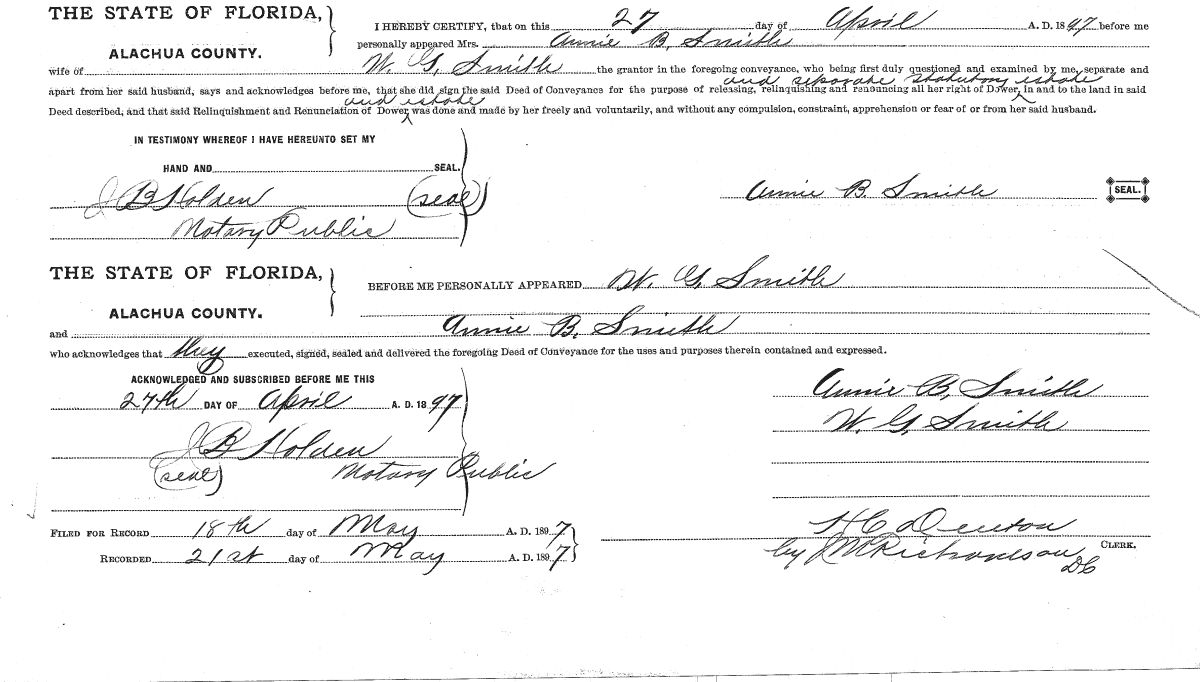 THE STATE OF FLORIDA,
ALACHUA COUNTY.
I HEREBY CERTIFY, that on this 27 day of April A. D. 1897 before me
personally appeared Mrs. Annie B. Smith
wife of W. G. Smith the grantor in the foregoing conveyance, who being first duly questioned and examined by me, separate and
and separate statutory estate
apart from her said husband, says and acknowledges before me, that she did sign the said Deed of Conveyance for the purpose of releasing, relinquishing and renouncing all her right of Dower, in and to the land in said
and estate
Deed described, and that said Relinquishment and Renunciation of Dower was done and made by her freely and voluntarily, and without any compulsion, constraint, apprehension or fear of or from her said husband.
IN TESTIMONY WHEREOF I HAVE HEREUNTO SET MY
HAND AND SEAL.
J B Holden (seal)
Notary Public
Annie B. Smith SEAL.
THE STATE OF FLORIDA,
ALACHUA COUNTY.
BEFORE ME PERSONALLY APPEARED W. G. Smith
and Annie B. Smith
who acknowledges that they executed, signed, sealed and delivered the foregoing Deed of Conveyance for the uses and purposes therein contained and expressed.
ACKNOWLEDGED AND SUBSCRIBED BEFORE ME THIS
27th DAY OF April A. D. 1897
J B Holden
(seal) Notary Public
Annie B. Smith
W. G. Smith
FILED FOR RECORD 18th day of May A. D. 1897
RECORDED 21st day of May A. D. 1897
H C Denton
by J M Richardson CLERK.
DC